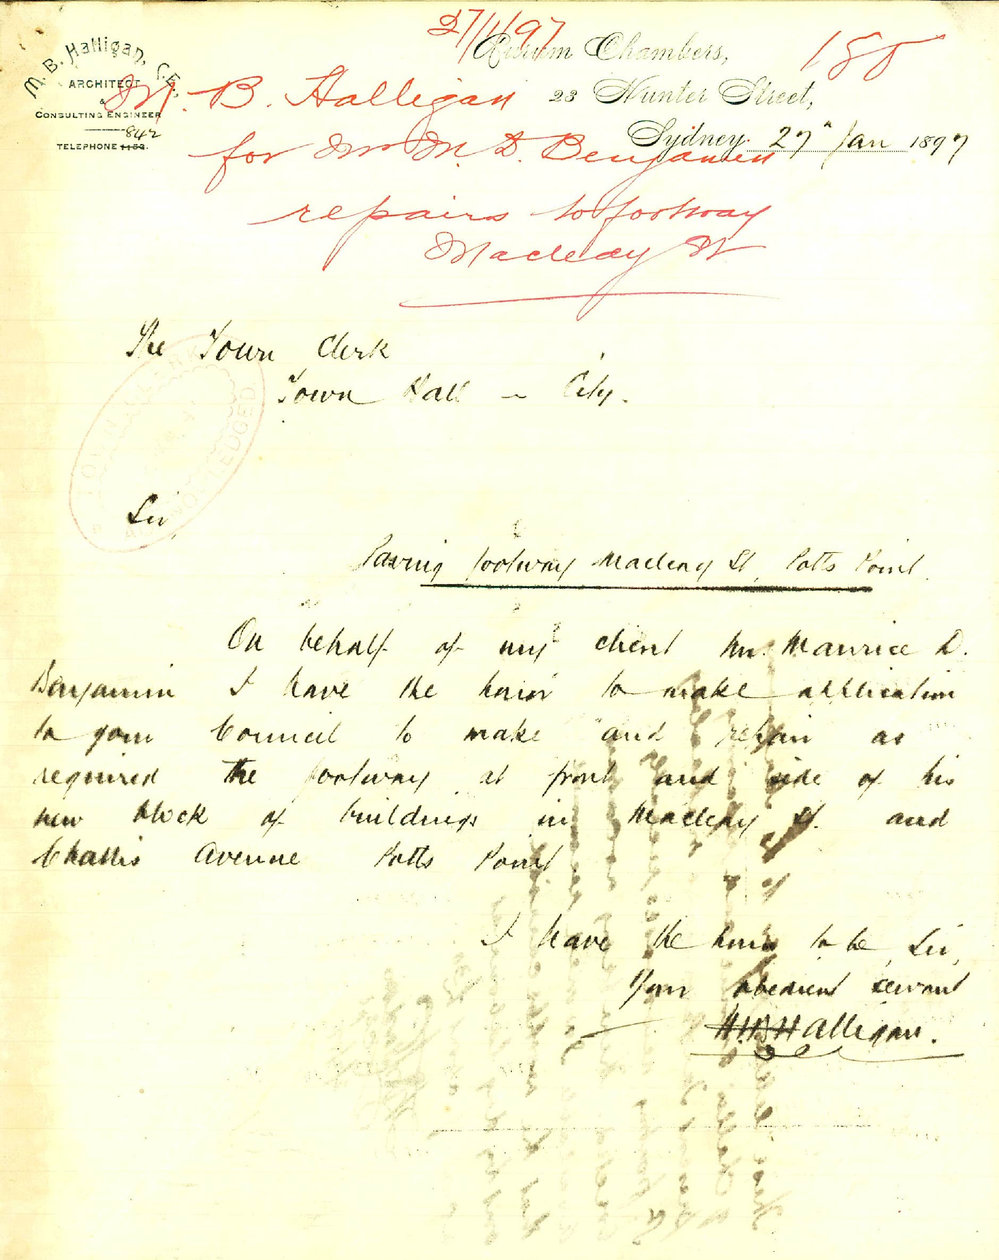 27/1/97
180
M. B. Halligan, C.E.
ARCHITECT
&
CONSULTING ENGINEER
842
TELEPHONE 1152.
Chambers,
23 Hunter Street,
Sydney 27" Jan 1897
M. B. Halligan
for Mr M. D. Benjamin
repairs to footway
Macleay St
The Town Clerk
Town Hall - City.
TOWN CLERK
ACKNOWLEDGED
Sir,
Paving footway Macleay St, Potts Point.
On behalf of my client Mr. Maurice D.
Benjamin I have the honor to make application
to your Council to make and repair as
required the footway at front and side of his
new block of buildings in Macleay St. and
Challis Avenue Potts Point.
I have the honor to be, Sir,
Your obedient servant
M.B. Halligan.